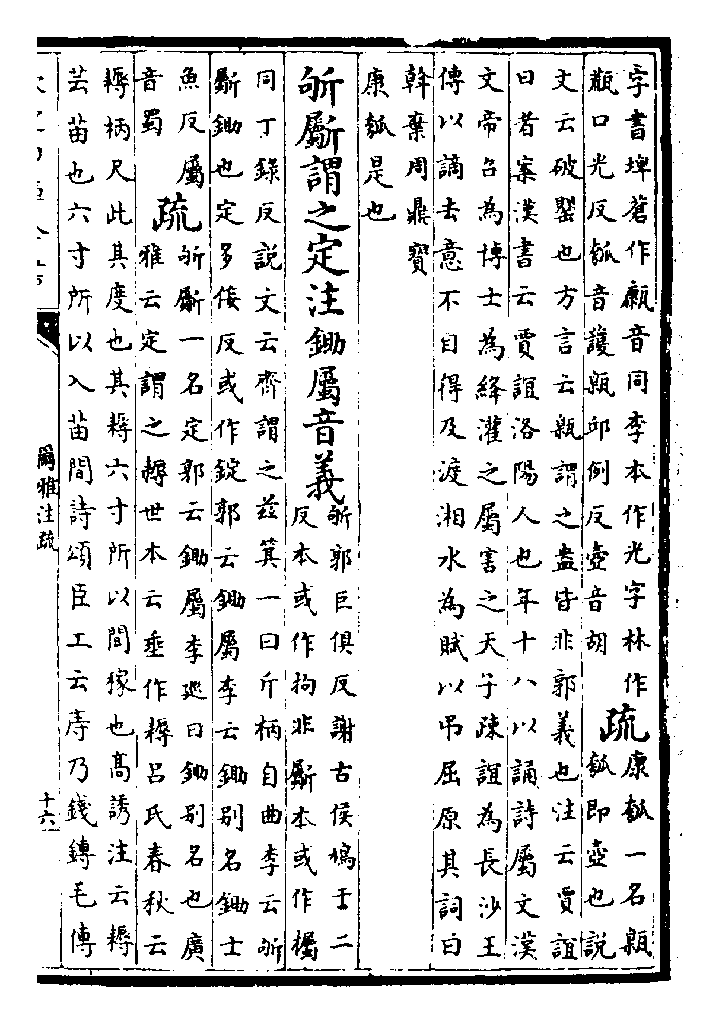 字書埤蒼作音同李本作光字林作
瓶口光反瓠音護甈邱例反壺音胡
疏
康瓠一名甈
瓠即壺也說
文云破罌也方言云甈謂之盎皆非郭義也注云賈誼
曰者案漢書云賈誼洛陽人也年十八以誦詩屬文漢
文帝召為博士為絳灌之屬害之天子疎誼為長沙王
傅以謫去意不自得及渡湘水為賦以弔屈原其詞曰
斡棄周鼎寳
康瓠是也
斪斸謂之定注鋤屬音義
斪郭巨俱反謝古侯鳩于二
反本或作拘非斸本或作欘
同丁錄反說文云齊謂之兹箕一曰斤柄自曲李云斪
斸鋤也定多佞反或作錠郭云鋤屬李云鋤别名鋤士
魚反屬
音蜀
疏
斪斸一名定郭云鋤屬李廵曰鋤别名也廣
雅云定謂之耨世本云垂作耨呂氏春秋云
耨柄尺此其度也其耨六寸所以間稼也髙誘注云耨
芸苗也六寸所以入苗間詩頌臣工云庤乃錢鎛毛傳
爾雅注疏
十六